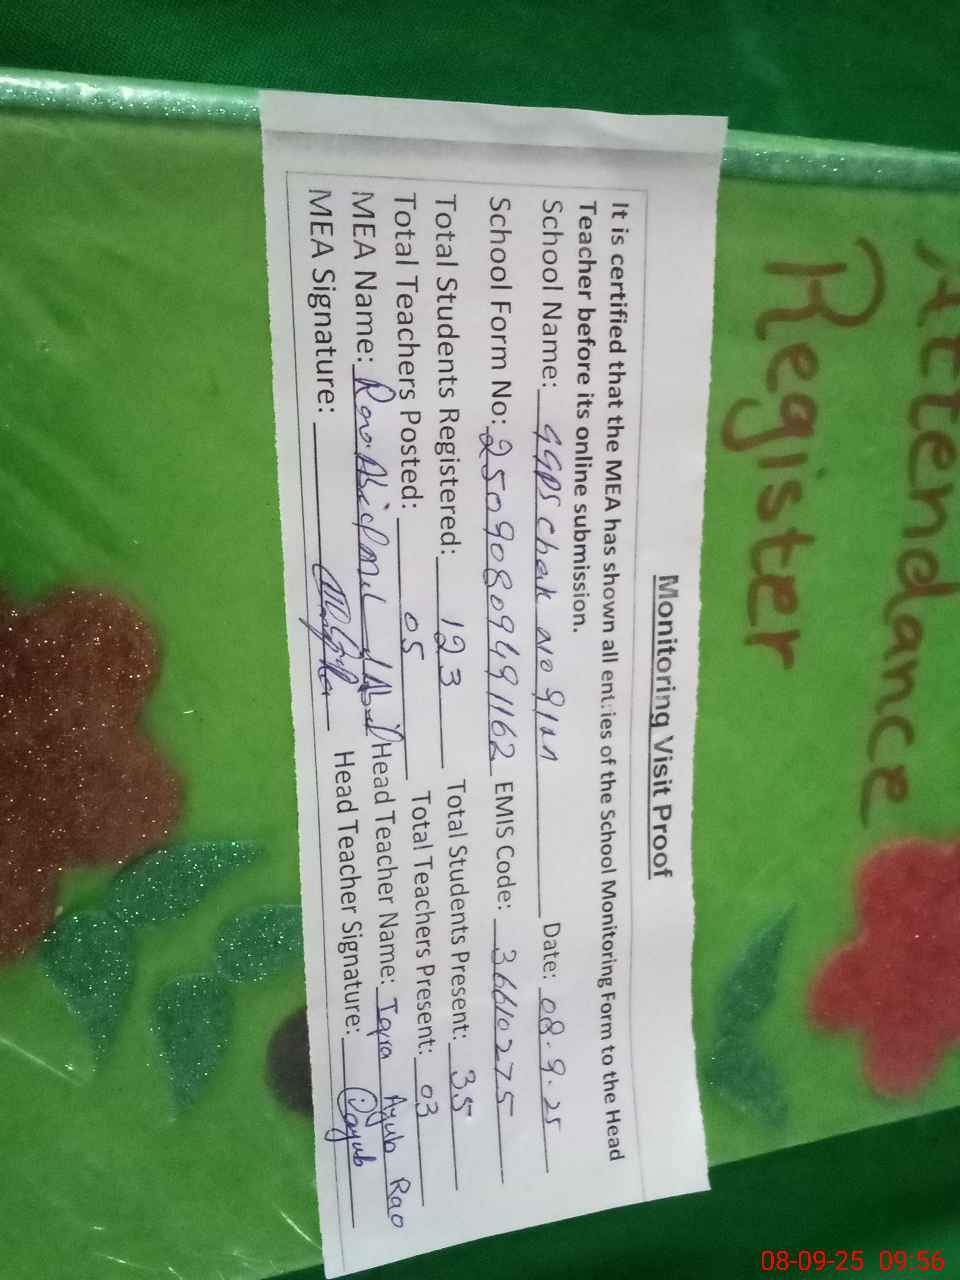 Attendance
Register
Monitoring Visit Proof
It is certified that the MEA has shown all entries of the School Monitoring Form to the Head
Teacher before its online submission.
School Name: GGPS Chak No 91M Date: 08.9.25
School Form No: 25090809491162 EMIS Code: 36610275
Total Students Registered: 123 Total Students Present: 35
Total Teachers Posted: 05 Total Teachers Present: 03
MEA Name: Rao Abid Head Teacher Name: Iqra Ayub Rao
MEA Signature: Head Teacher Signature: Iayub
08-09-25 09:56